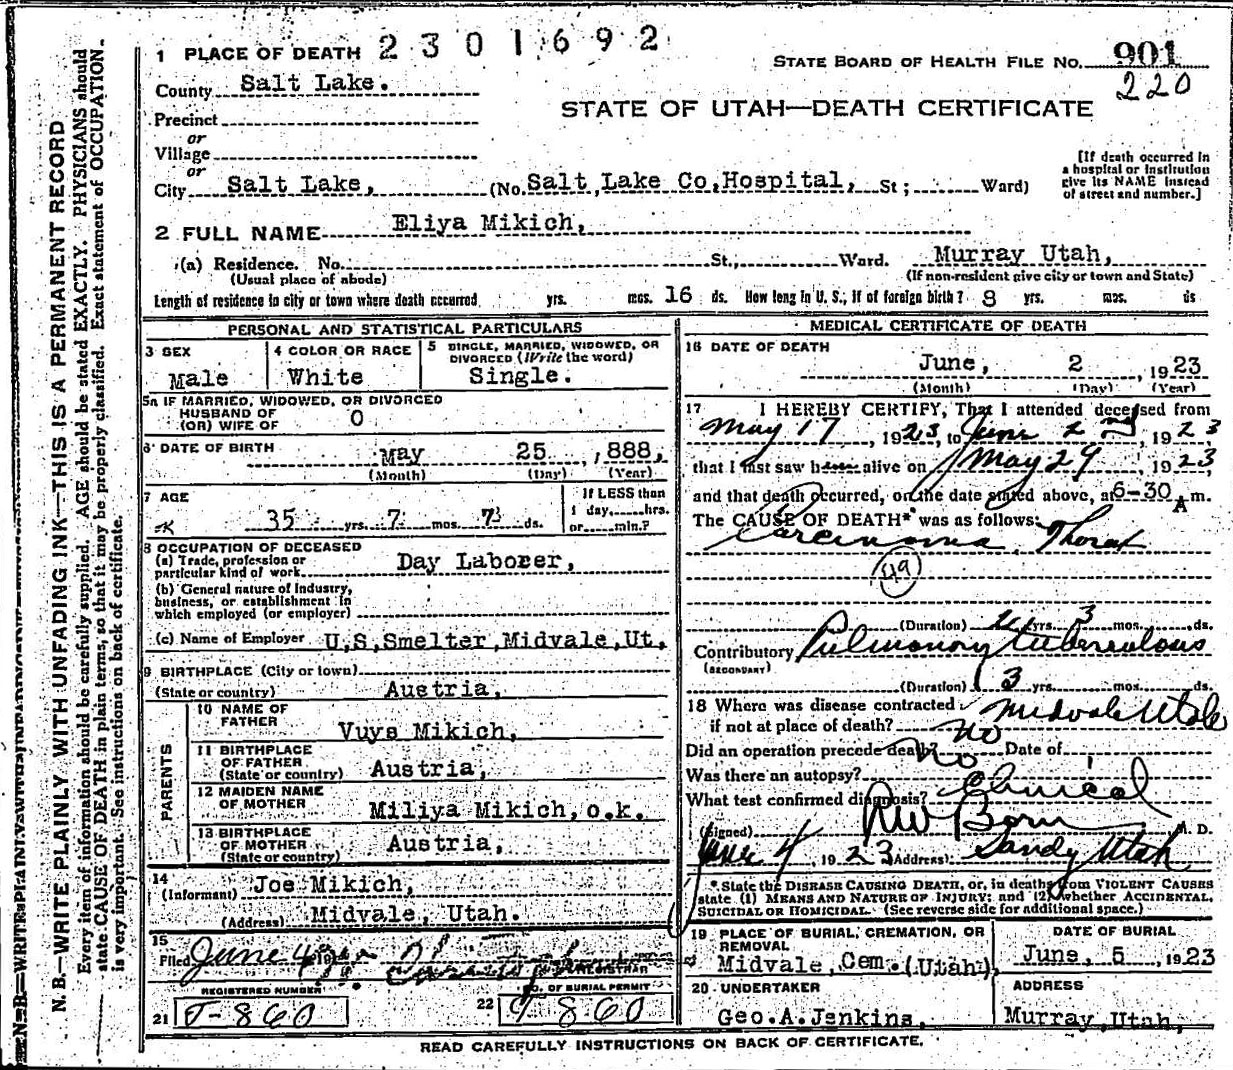 1 PLACE OF DEATH 2301692
STATE BOARD OF HEALTH FILE NO. 901
220
County Salt Lake.
STATE OF UTAH—DEATH CERTIFICATE
Precinct
or
Village
or
City Salt Lake, (No. Salt, Lake Co, Hospital, St; Ward)
[If death occurred in
a hospital or institution
give its NAME instead
of street and number.]
2 FULL NAME Eliya Mikich,
(a) Residence. No. St., Ward. Murray Utah,
(Usual place of abode) (If non-resident give city or town and State)
Length of residence in city or town where death occurred yrs. mos. 16 ds. How long in U. S., if of foreign birth? 8 yrs. mos. ds
PERSONAL AND STATISTICAL PARTICULARS
3 SEX
Male
4 COLOR OR RACE
White
5 SINGLE, MARRIED, WIDOWED, OR
DIVORCED (Write the word)
Single.
5a IF MARRIED, WIDOWED, OR DIVORCED
HUSBAND OF
(OR) WIFE OF 0
6 DATE OF BIRTH May 25 , 888,
(Month) (Day) (Year)
7 AGE
35 yrs. 7 mos. 7 ds.
If LESS than
1 day, hrs.
or min.?
8 OCCUPATION OF DECEASED
(a) Trade, profession or
particular kind of work Day Laborer,
(b) General nature of Industry,
business, or establishment in
which employed (or employer)
(c) Name of Employer U,S,Smelter,Midvale,Ut,
9 BIRTHPLACE (City or town)
(State or country) Austria,
PARENTS
10 NAME OF
FATHER Vuys Mikich,
11 BIRTHPLACE
OF FATHER
(State or country) Austria,
12 MAIDEN NAME
OF MOTHER Miliya Mikich, o.k.
13 BIRTHPLACE
OF MOTHER
(State or country) Austria,
14
(Informant) Joe Mikich,
(Address) Midvale, Utah.
15
Filed June 4
REGISTRAR
REGISTERED NUMBER
21 J-860
NO. OF BURIAL PERMIT
22 J 860
MEDICAL CERTIFICATE OF DEATH
16 DATE OF DEATH
June, 2 , 1923
(Month) (Day) (Year)
17 I HEREBY CERTIFY, That I attended deceased from
May 17 , 1923, to June 2nd , 1923
that I last saw h alive on May 29 , 1923
and that death occurred, on the date stated above, at 6-30 A m.
The CAUSE OF DEATH* was as follows:
Carcinoma, Thorax
49
(Duration) yrs. 3 mos. ds.
Contributory Pulmonory tuberculous
(SECONDARY)
(Duration) 3 yrs. mos. ds.
18 Where was disease contracted
if not at place of death? Midvale Utah
Did an operation precede death? No Date of
Was there an autopsy? No
What test confirmed diagnosis? Clinical
(Signed) RW Born M. D.
June 4, 1923 (Address) Sandy Utah
*State the DISEASE CAUSING DEATH, or, in deaths from VIOLENT CAUSES
state (1) MEANS AND NATURE OF INJURY; and (2) whether ACCIDENTAL,
SUICIDAL OR HOMICIDAL. (See reverse side for additional space.)
19 PLACE OF BURIAL, CREMATION, OR
REMOVAL
Midvale, Cem. (Utah),
DATE OF BURIAL
June, 5 , 1923
20 UNDERTAKER
Geo.A.Jenkins,
ADDRESS
Murray, Utah,
READ CAREFULLY INSTRUCTIONS ON BACK OF CERTIFICATE.
N. B.—WRITE PLAINLY WITH UNFADING INK—THIS IS A PERMANENT RECORD
Every item of information should be carefully supplied. AGE should be stated EXACTLY. PHYSICIANS should
state CAUSE OF DEATH in plain terms, so that it may be properly classified. Exact statement of OCCUPATION
is very important. See instructions on back of certificate.